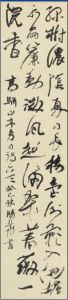 綠樹濃陰夏日長樓臺倒影入池塘
水晶簾動微風起滿架薔薇一
院香 高駢山亭夏日詩